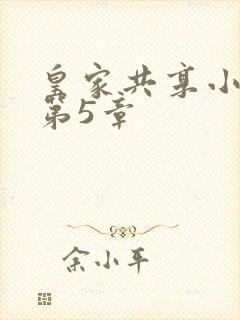 皇家共享小
第5章
余小平